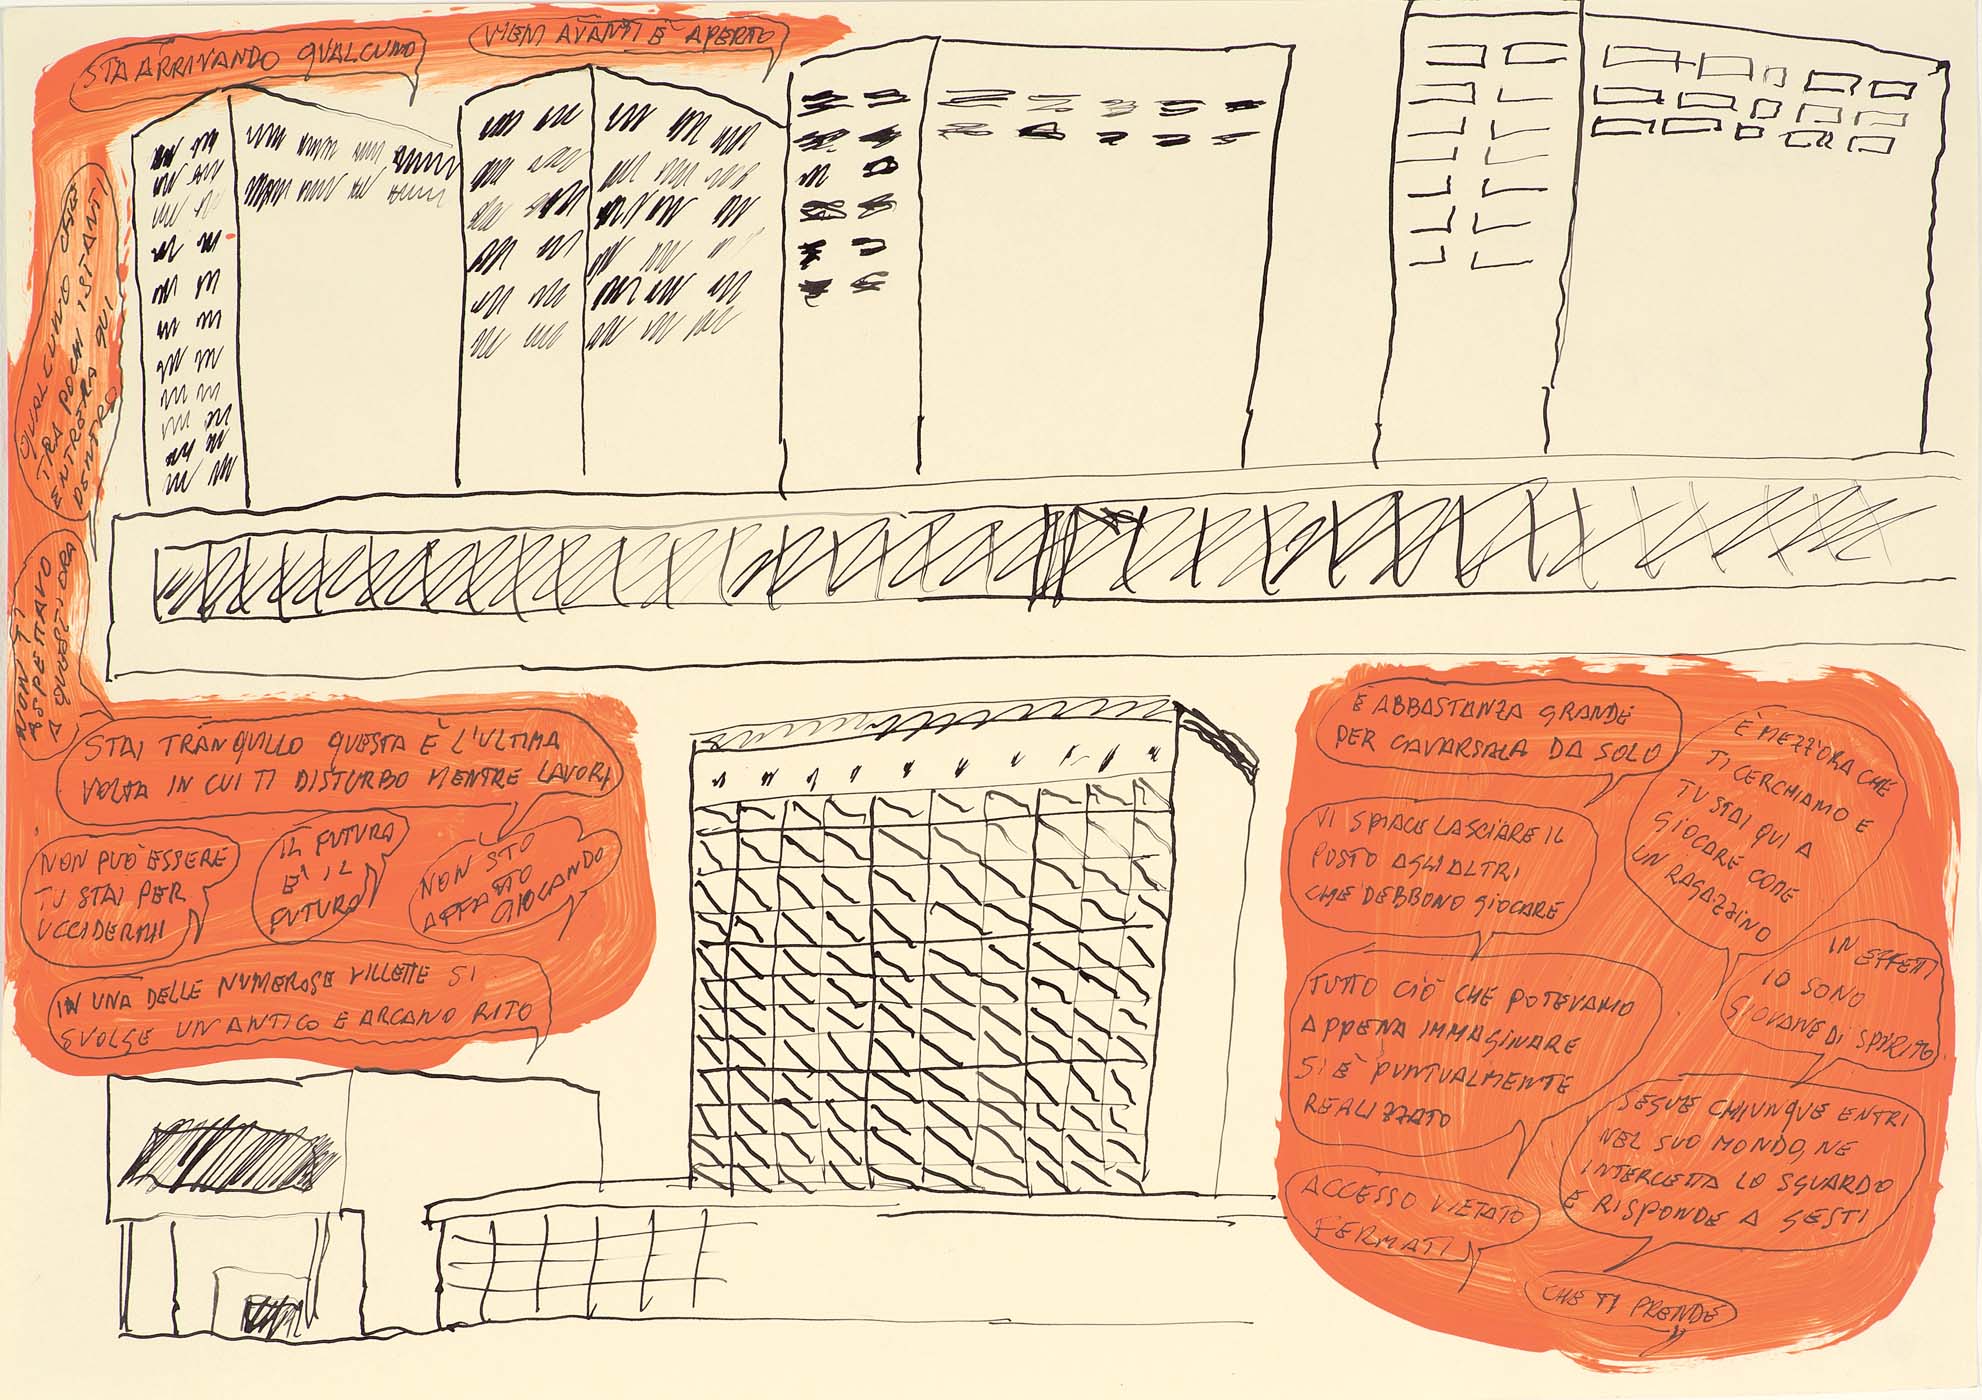 STA ARRIVANDO QUALCUNO
VIENI AVANTI È APERTO
QUALCUNO CHE
TRA POCHI ISTANTI
ENTRERA QUI
DENTRO
NON TI
ASPETTAVO
A QUEST'ORA
STAI TRANQUILLO QUESTA È L'ULTIMA
VOLTA IN CUI TI DISTURBO MENTRE LAVORI
NON PUÒ ESSERE
TU STAI PER
UCCIDERMI
IL FUTURO
E' IL
FUTURO
NON STO
AFFATTO
GIOCANDO
IN UNA DELLE NUMEROSE VILLETTE SI
SVOLGE UN ANTICO E ARCANO RITO
È ABBASTANZA GRANDE
PER CAVARSALA DA SOLO
È MEZZ'ORA CHE
TI CERCHIAMO E
TU STAI QUI A
GIOCARE COME
UN RAGAZZINO
VI SPIACE LASCIARE IL
POSTO AGLI ALTRI
CHE DEBBONO GIOCARE
IN EFFETTI
IO SONO
GIOVANE DI SPIRITO
TUTTO CIÒ CHE POTEVAMO
APPENA IMMAGINARE
SI È PUNTUALMENTE
REALIZZATO
SEGUE CHIUNQUE ENTRI
NEL SUO MONDO, NE
INTERCETTA LO SGUARDO
E RISPONDE A GESTI
ACCESSO VIETATO
FERMATI
CHE TI PRENDE